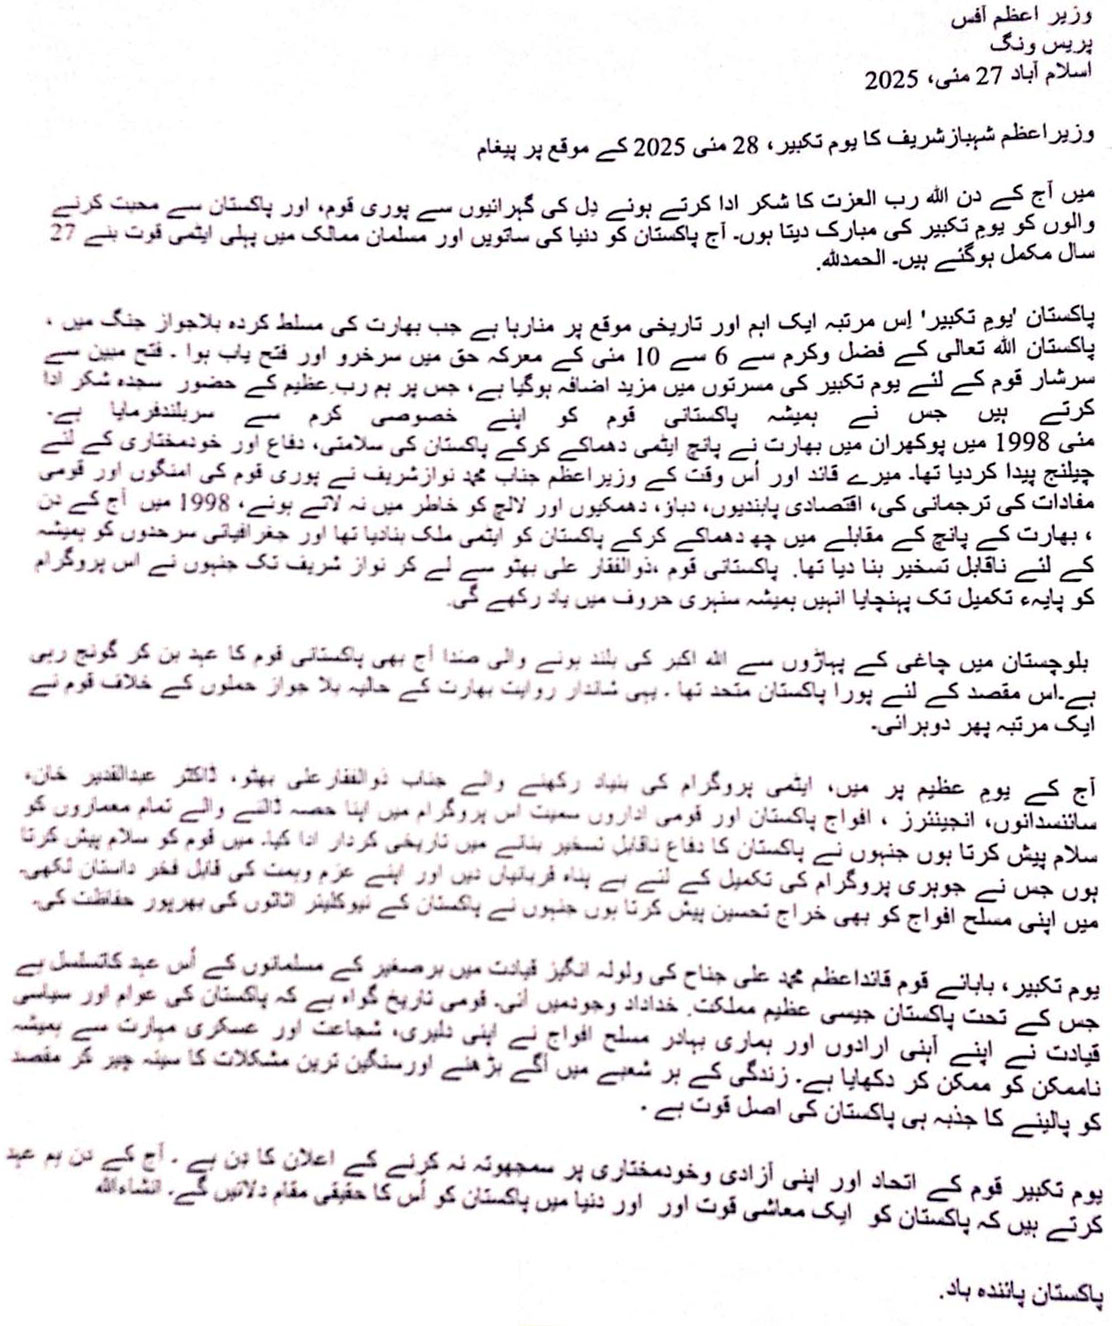 وزیر اعظم آفس
پریس ونگ
اسلام آباد 27 مئی، 2025
وزیراعظم شہبازشریف کا یوم تکبیر، 28 مئی 2025 کے موقع پر پیغام
میں آج کے دن اللہ رب العزت کا شکر ادا کرتے ہوئے دِل کی گہرائیوں سے پوری قوم، اور پاکستان سے محبت کرنے
والوں کو یومِ تکبیر کی مبارک دیتا ہوں۔ آج پاکستان کو دنیا کی ساتویں اور مسلمان ممالک میں پہلی ایٹمی قوت بنے 27
سال مکمل ہوگئے ہیں۔ الحمدللہ.
پاکستان 'یومِ تکبیر' اِس مرتبہ ایک اہم اور تاریخی موقع پر منارہا ہے جب بھارت کی مسلط کردہ بلاجواز جنگ میں ،
پاکستان اللہ تعالی کے فضل وکرم سے 6 سے 10 مئی کے معرکہ حق میں سرخرو اور فتح یاب ہوا ۔ فتح مبین سے
سرشار قوم کے لئے یوم تکبیر کی مسرتوں میں مزید اضافہ ہوگیا ہے، جس پر ہم ربِ عظیم کے حضور سجدہ شکر ادا
کرتے ہیں جس نے ہمیشہ پاکستانی قوم کو اپنے خصوصی کرم سے سربلندفرمایا ہے۔
مئی 1998 میں پوکھران میں بھارت نے پانچ ایٹمی دھماکے کرکے پاکستان کی سلامتی، دفاع اور خودمختاری کے لئے
چیلنج پیدا کردیا تھا۔ میرے قائد اور اُس وقت کے وزیراعظم جناب محمد نوازشریف نے پوری قوم کی امنگوں اور قومی
مفادات کی ترجمانی کی، اقتصادی پابندیوں، دباؤ، دھمکیوں اور لالچ کو خاطر میں نہ لاتے ہوئے، 1998 میں آج کے دن
، بھارت کے پانچ کے مقابلے میں چھ دھماکے کرکے پاکستان کو ایٹمی ملک بنادیا تھا اور جغرافیائی سرحدوں کو ہمیشہ
کے لئے ناقابل تسخیر بنا دیا تھا. پاکستانی قوم ،ذوالفقار علی بھٹو سے لے کر نواز شریف تک جنہوں نے اس پروگرام
کو پایہء تکمیل تک پہنچایا انہیں ہمیشہ سنہری حروف میں یاد رکھے گی.
بلوچستان میں چاغی کے پہاڑوں سے اللہ اکبر کی بلند ہونے والی صدا آج بھی پاکستانی قوم کا عہد بن کر گونج رہی
ہے۔اس مقصد کے لئے پورا پاکستان متحد تھا ۔ یہی شاندار روایت بھارت کے حالیہ بلا جواز حملوں کے خلاف قوم نے
ایک مرتبہ پھر دوہرائی۔
آج کے یومِ عظیم پر میں، ایٹمی پروگرام کی بنیاد رکھنے والے جناب ذوالفقارعلی بھٹو، ڈاکٹر عبدالقدیر خان،
سائنسدانوں، انجینئرز ، افواج پاکستان اور قومی اداروں سمیت اس پروگرام میں اپنا حصہ ڈالنے والے تمام معماروں کو
سلام پیش کرتا ہوں جنہوں نے پاکستان کا دفاع ناقابلِ تسخیر بنانے میں تاریخی کردار ادا کیا۔ میں قوم کو سلام پیش کرتا
ہوں جس نے جوہری پروگرام کی تکمیل کے لئے بے پناہ قربانیاں دیں اور اپنے عزم وہمت کی قابل فخر داستان لکھی۔
میں اپنی مسلح افواج کو بھی خراج تحسین پیش کرتا ہوں جنہوں نے پاکستان کے نیوکلیئر اثاثوں کی بھرپور حفاظت کی۔
یوم تکبیر، بابائے قوم قائداعظم محمد علی جناح کی ولولہ انگیز قیادت میں برصغیر کے مسلمانوں کے اُس عہد کاتسلسل ہے
جس کے تحت پاکستان جیسی عظیم مملکتِ خداداد وجودمیں آئی۔ قومی تاریخ گواہ ہے کہ پاکستان کی عوام اور سیاسی
قیادت نے اپنے آہنی ارادوں اور ہماری بہادر مسلح افواج نے اپنی دلیری، شجاعت اور عسکری مہارت سے ہمیشہ
ناممکن کو ممکن کر دکھایا ہے۔ زندگی کے ہر شعبے میں آگے بڑھنے اورسنگین ترین مشکلات کا سینہ چیر کر مقصد
کو پالینے کا جذبہ ہی پاکستان کی اصل قوت ہے ۔
یوم تکبیر قوم کے اتحاد اور اپنی آزادی وخودمختاری پر سمجھوتہ نہ کرنے کے اعلان کا دِن ہے ۔ آج کے دن ہم عہد
کرتے ہیں کہ پاکستان کو ایک معاشی قوت اور اور دنیا میں پاکستان کو اُس کا حقیقی مقام دلائیں گے۔ انشاءاللہ
پاکستان پائندہ باد.